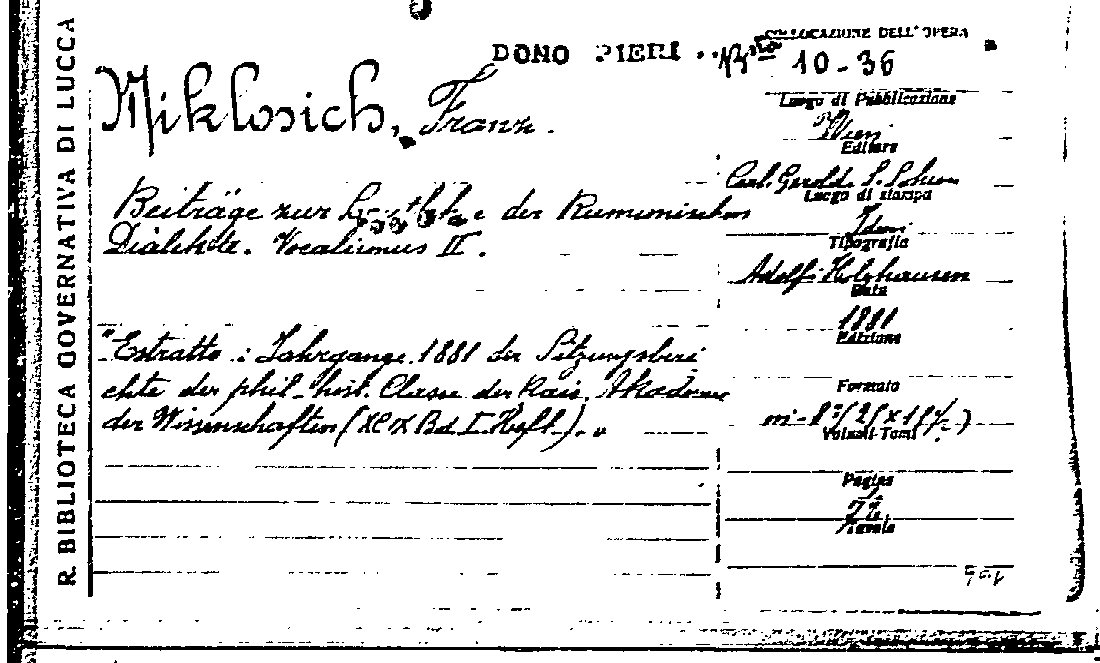 R. BIBLIOTECA GOVERNATIVA DI LUCCA
DONO PIERI
COLLOCAZIONE DELL'OPERA
10-36
Miklosich, Franz.
Luogo di Pubblicazione
Wien
Editore
Carl. Gerold. S. Sohn
Luogo di stampa
Beiträge zur der Rumunischen
Dialekte. Vocalismus II.
Tipografia
Adolf Holzhausen
Data
1881
Edizione
"Estratto: Jahrgange 1881 der Sitzungsberi
chte der phil-hist. Classe der Kais. Akademie
der Wissenschaften (XCIX Bd. I. Heft)."
Formato
Volumi-Tomi
Pagine
Tavole